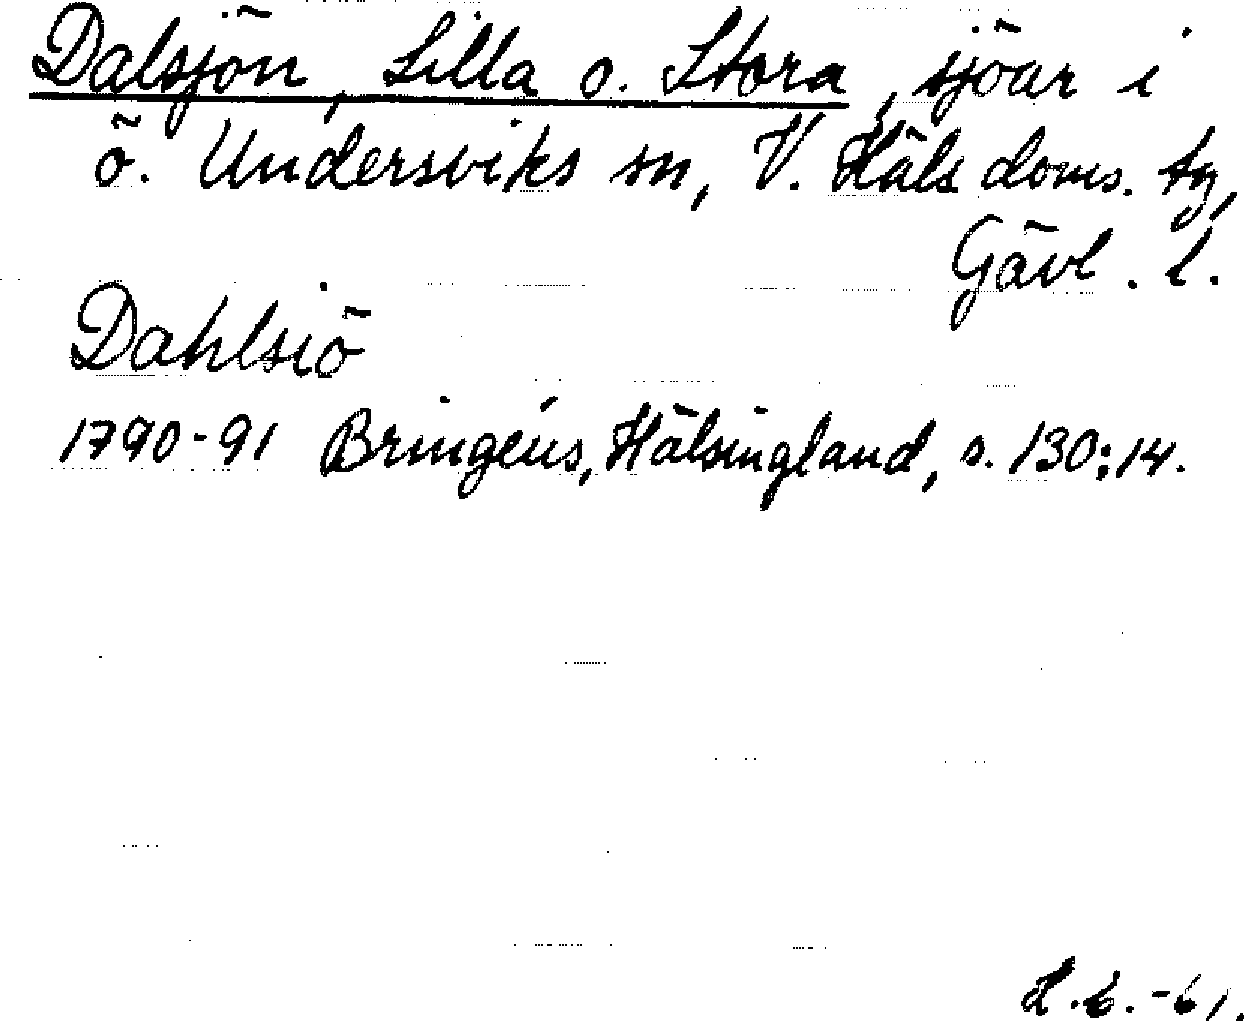 Dalsjön, Lilla o. Stora, sjöar i
ö. Undersviks sn, V. Häls doms. tg,
Gävl. l.
Dahlsiö
1790-91 Bringéus, Hälsingland, s. 130:14.
L.E.-61.